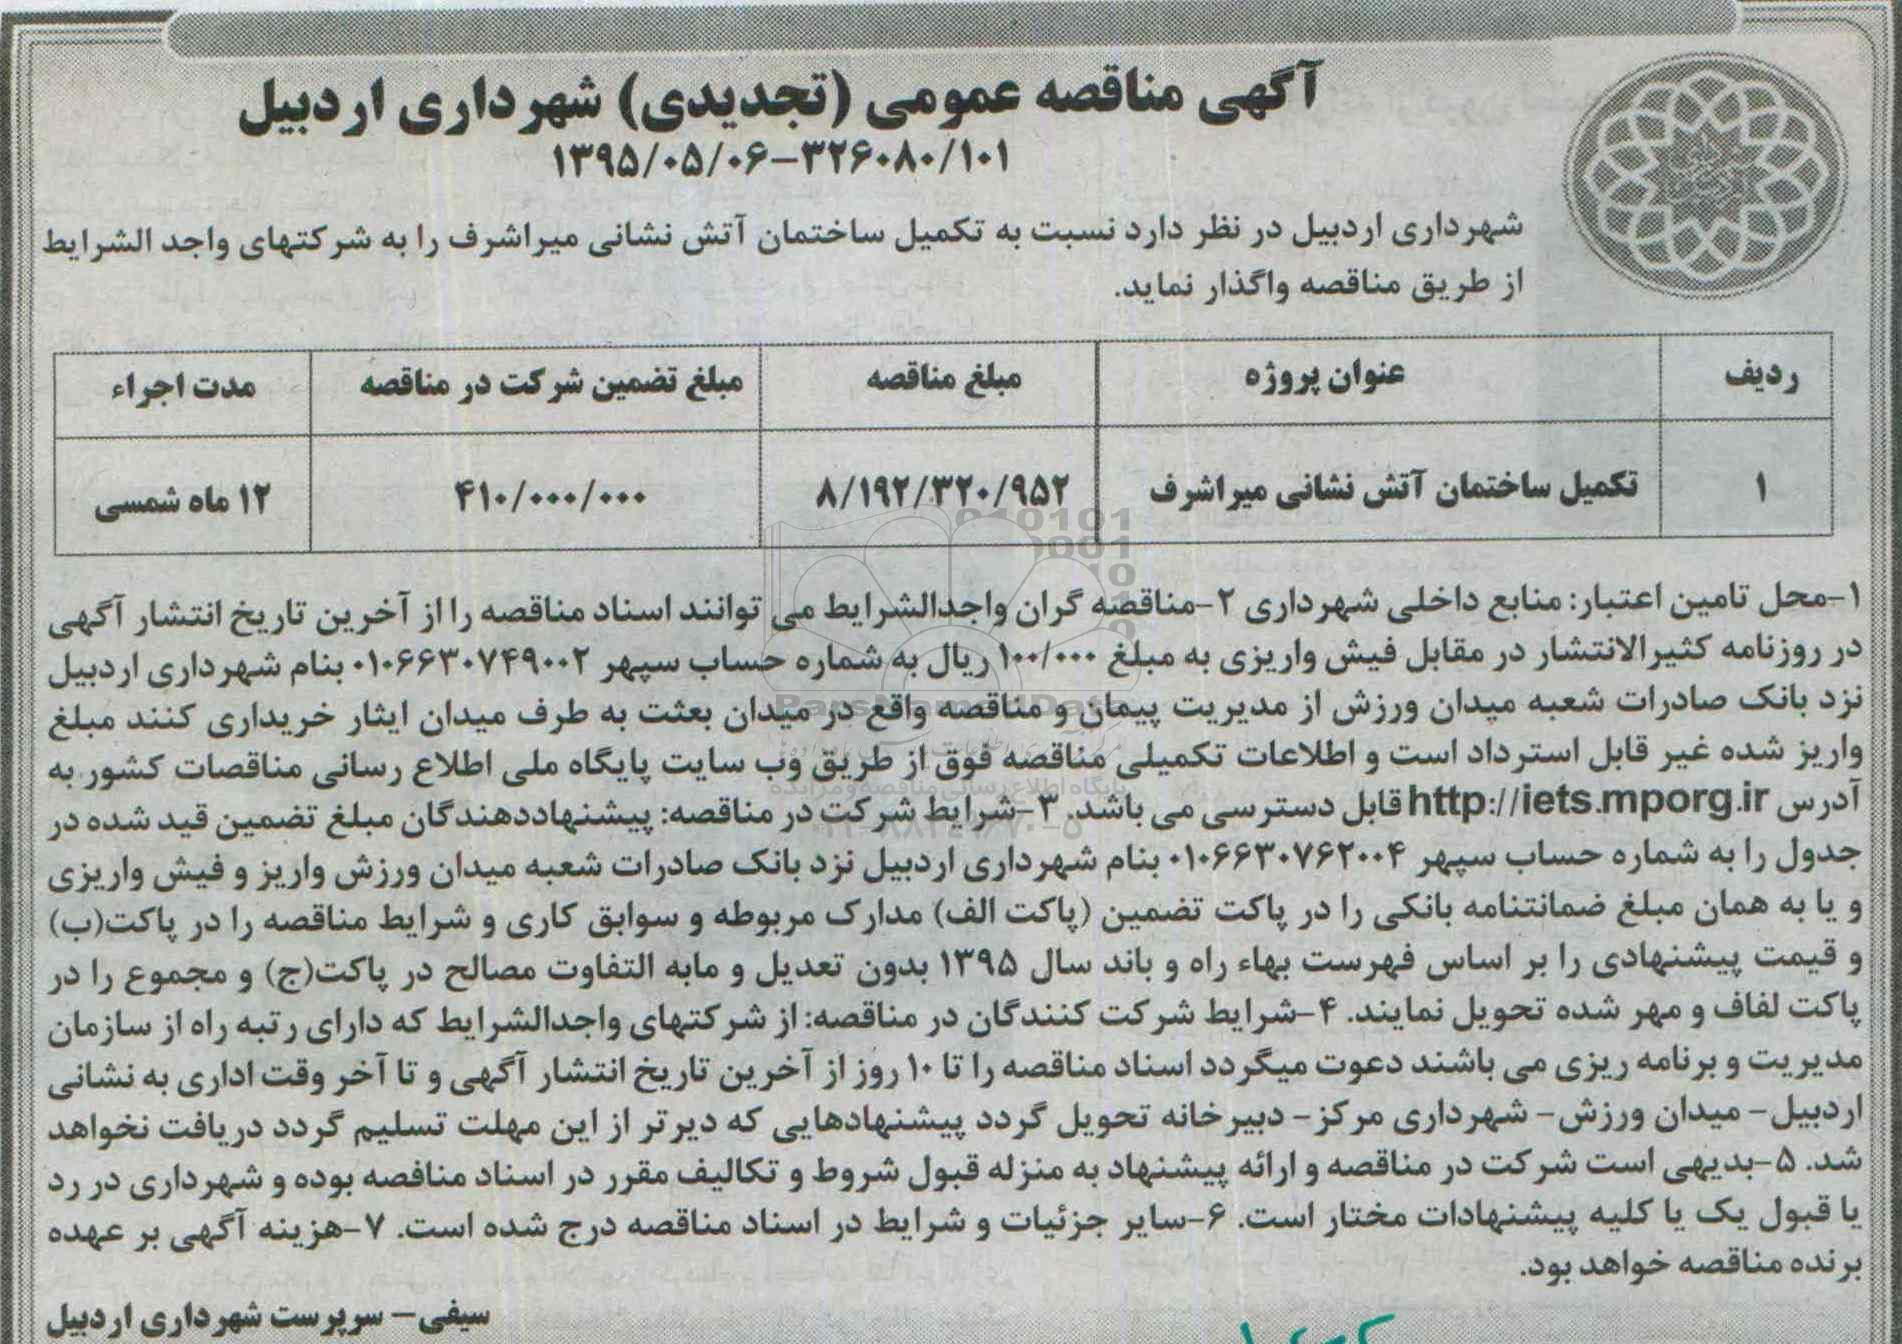 آگهی مناقصه عمومی (تجدیدی) شهرداری اردبیل
۱۳۹۵/۰۵/۰۶-۳۲۶۰۸۰/۱۰۱
شهرداری اردبیل در نظر دارد نسبت به تکمیل ساختمان آتش نشانی میراشرف را به شرکتهای واجد الشرایط
از طریق مناقصه واگذار نماید.
ردیف عنوان پروژه مبلغ مناقصه مبلغ تضمین شرکت در مناقصه مدت اجراء
۱ تکمیل ساختمان آتش نشانی میراشرف ۸/۱۹۲/۳۲۰/۹۵۲ ۴۱۰/۰۰۰/۰۰۰ ۱۲ ماه شمسی
۱-محل تامین اعتبار: منابع داخلی شهرداری ۲-مناقصه گران واجدالشرایط می توانند اسناد مناقصه را از آخرین تاریخ انتشار آگهی
در روزنامه کثیرالانتشار در مقابل فیش واریزی به مبلغ ۱۰۰/۰۰۰ ریال به شماره حساب سپهر ۰۱۰۶۶۳۰۷۴۹۰۰۲ بنام شهرداری اردبیل
نزد بانک صادرات شعبه میدان ورزش از مدیریت پیمان و مناقصه واقع در میدان بعثت به طرف میدان ایثار خریداری کنند مبلغ
واریز شده غیر قابل استرداد است و اطلاعات تکمیلی مناقصه فوق از طریق وب سایت پایگاه ملی اطلاع رسانی مناقصات کشور به
آدرس http://iets.mporg.ir قابل دسترسی می باشد. ۳-شرایط شرکت در مناقصه: پیشنهاددهندگان مبلغ تضمین قید شده در
جدول را به شماره حساب سپهر ۰۱۰۶۶۳۰۷۶۲۰۰۴ بنام شهرداری اردبیل نزد بانک صادرات شعبه میدان ورزش واریز و فیش واریزی
و یا به همان مبلغ ضمانتنامه بانکی را در پاکت تضمین (پاکت الف) مدارک مربوطه و سوابق کاری و شرایط مناقصه را در پاکت(ب)
و قیمت پیشنهادی را بر اساس فهرست بهاء راه و باند سال ۱۳۹۵ بدون تعدیل و مابه التفاوت مصالح در پاکت(ج) و مجموع را در
پاکت لفاف و مهر شده تحویل نمایند. ۴-شرایط شرکت کنندگان در مناقصه: از شرکتهای واجدالشرایط که دارای رتبه راه از سازمان
مدیریت و برنامه ریزی می باشند دعوت میگردد اسناد مناقصه را تا ۱۰ روز از آخرین تاریخ انتشار آگهی و تا آخر وقت اداری به نشانی
اردبیل- میدان ورزش- شهرداری مرکز- دبیرخانه تحویل گردد پیشنهادهایی که دیرتر از این مهلت تسلیم گردد دریافت نخواهد
شد. ۵-بدیهی است شرکت در مناقصه و ارائه پیشنهاد به منزله قبول شروط و تکالیف مقرر در اسناد منافصه بوده و شهرداری در رد
یا قبول یک یا کلیه پیشنهادات مختار است. ۶-سایر جزئیات و شرایط در اسناد مناقصه درج شده است. ۷-هزینه آگهی بر عهده
برنده مناقصه خواهد بود.
سیفی- سرپرست شهرداری اردبیل